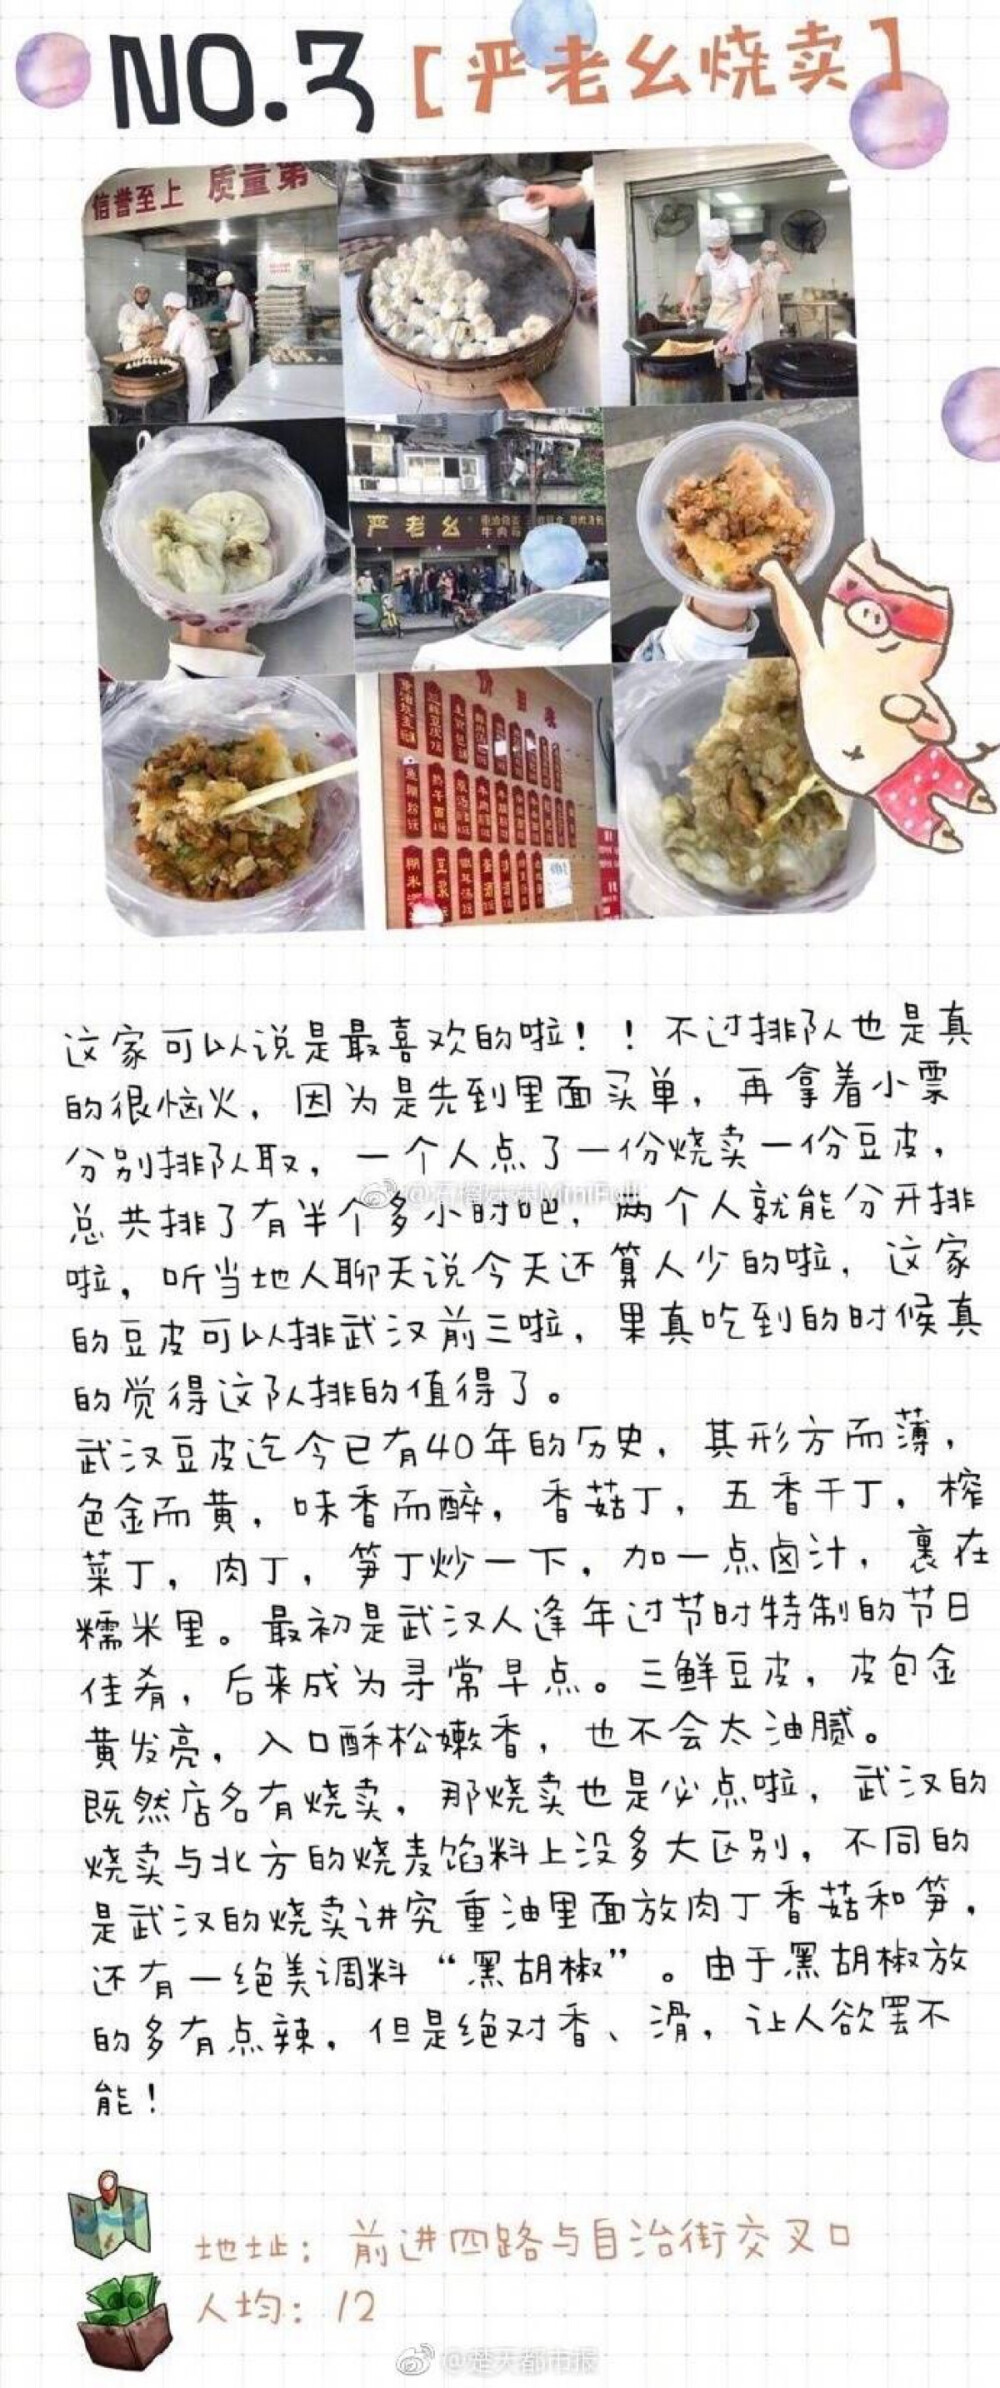 NO.3【严老幺烧卖】
信誉至上 质量第
严老幺
这家可以说是最喜欢的啦！！不过排队也是真
的很恼火，因为是先到里面买单，再拿着小票
分别排队取，一个人点了一份烧卖一份豆皮，
总共排了有半个多小时吧，两个人就能分开排
啦，听当地人聊天说今天还算人少的啦，这家
的豆皮可以排武汉前三啦，果真吃到的时候真
的觉得这队排的值得了。
武汉豆皮迄今已有40年的历史，其形方而薄，
色金而黄，味香而醉，香菇丁，五香干丁，榨
菜丁，肉丁，笋丁炒一下，加一点卤汁，裹在
糯米里。最初是武汉人逢年过节时特制的节日
佳肴，后来成为寻常早点。三鲜豆皮，皮包金
黄发亮，入口酥松嫩香，也不会太油腻。
既然店名有烧卖，那烧卖也是必点啦，武汉的
烧卖与北方的烧麦馅料上没多大区别，不同的
是武汉的烧卖讲究重油里面放肉丁香菇和笋，
还有一绝美调料“黑胡椒”。由于黑胡椒放
的多有点辣，但是绝对香、滑，让人欲罢不
能！
地址：前进四路与自治街交叉口
人均：12
@楚天都市报